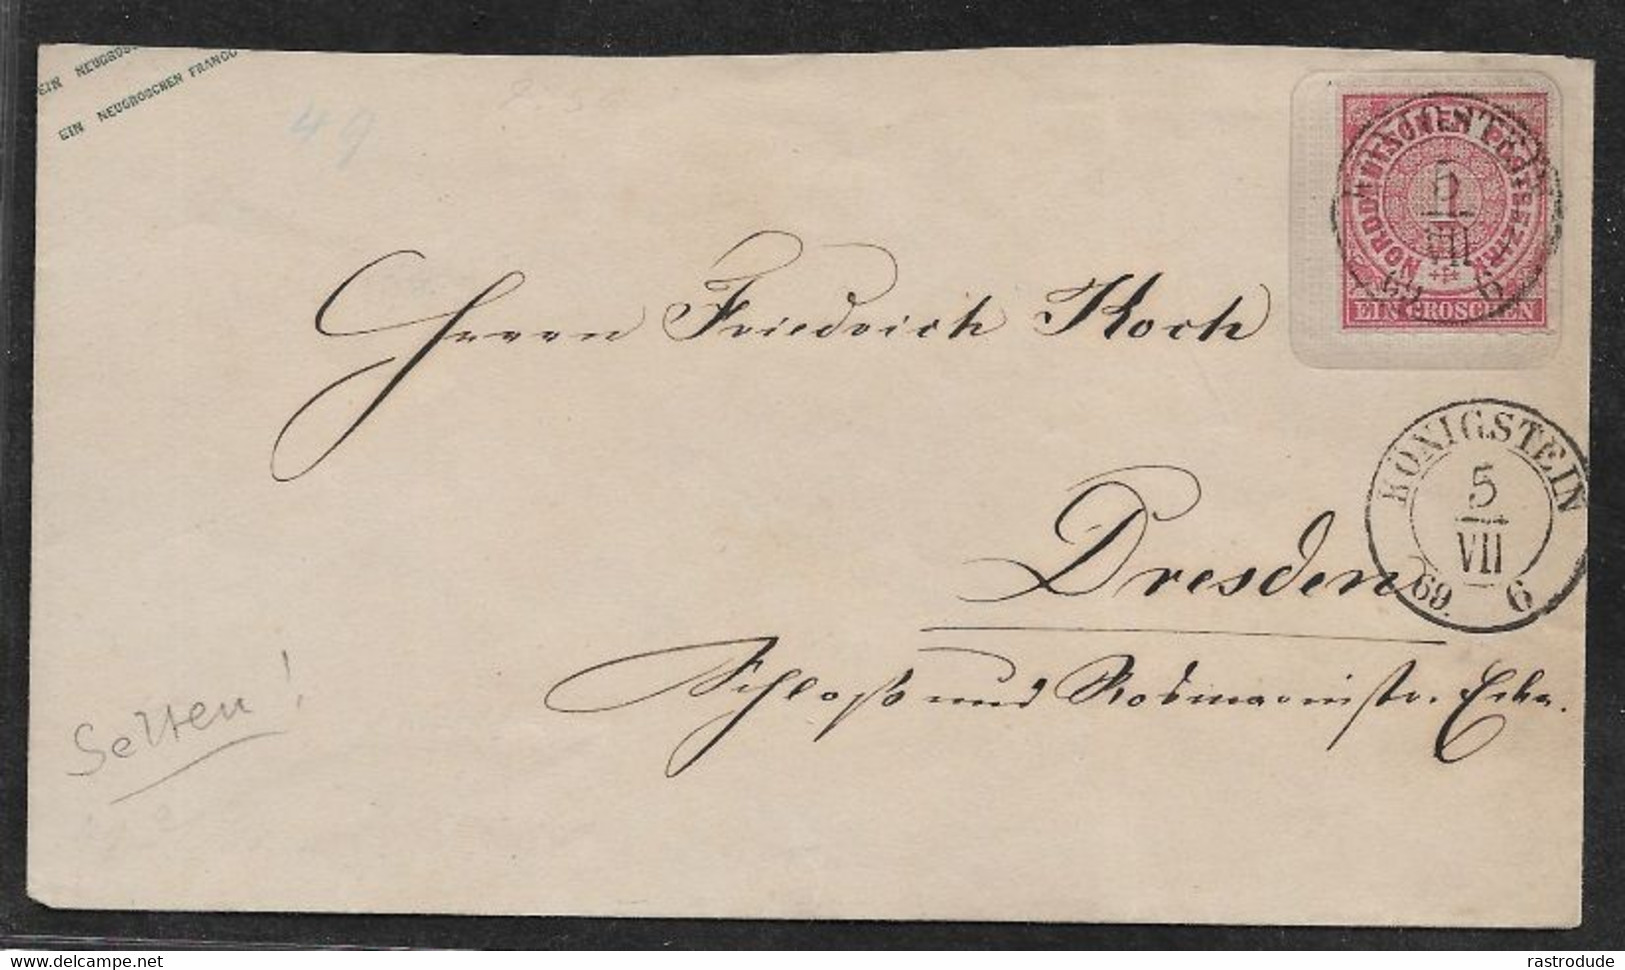 EIN NEUGROS
EIN NEUGROSCHEN FRANCO
49
NORDDEUTSCHER POSTBEZIRK
1
EIN GROSCHEN
5
VII
69 6
Herrn Friedrich Koch
KÖNIGSTEIN
5
VII
69. 6
Dresden
Schloß und Rosmarinstr. Ecke.
Selten!
www.delcampe.net
rastrodude